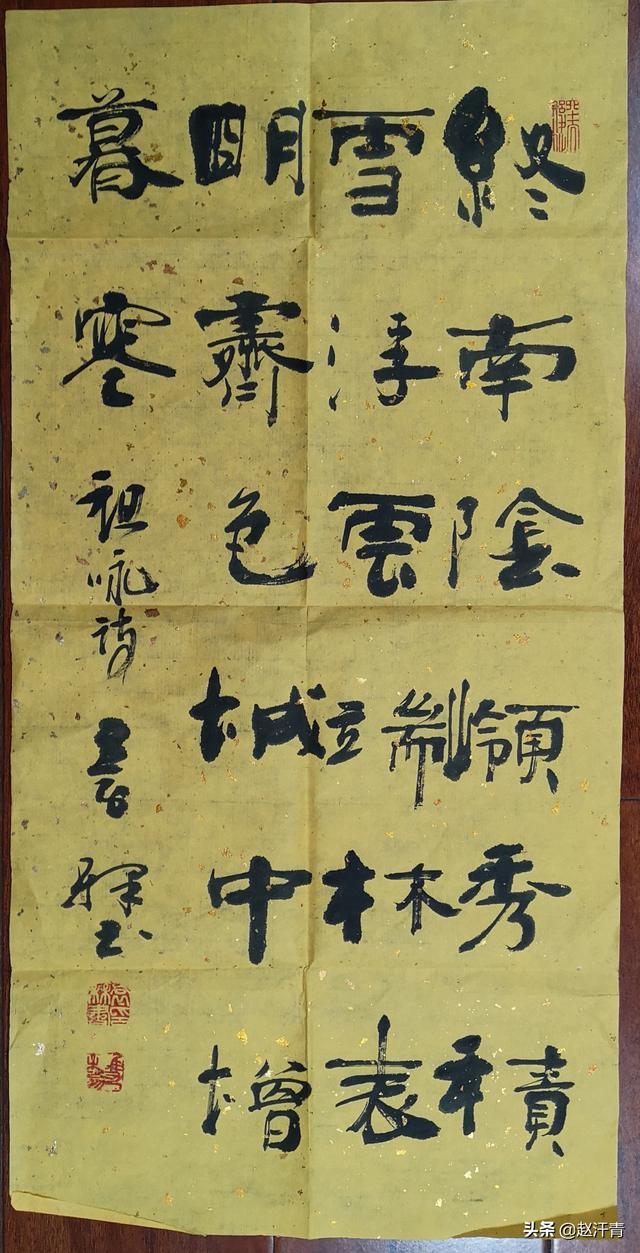 終南陰嶺秀積
雪浮雲端林表
明霽色城中增
暮寒 祖詠詩
头条 @赵汗青